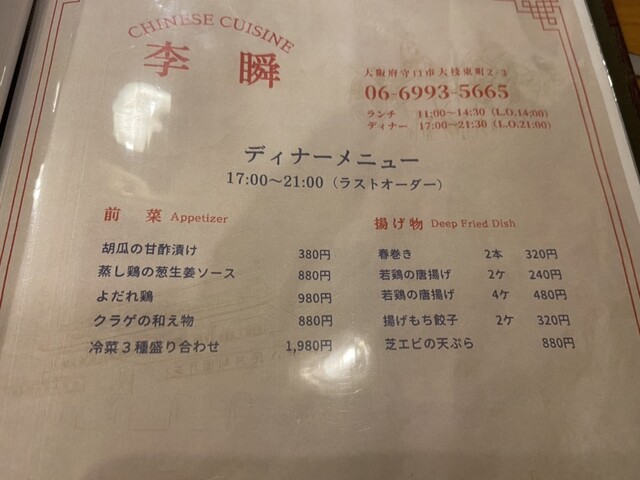 CHINESE CUISINE
李 瞬
大阪府守口市大枝東町2-3
06-6993-5665
ランチ 11:00～14:30（L.O.14:00）
ディナー 17:00～21:30（L.O.21:00）
ディナーメニュー
17:00～21:00（ラストオーダー）
前 菜 Appetizer
胡瓜の甘酢漬け 380円
蒸し鶏の葱生姜ソース 880円
よだれ鶏 980円
クラゲの和え物 880円
冷菜３種盛り合わせ 1,980円
揚げ物 Deep Fried Dish
春巻き 2本 320円
若鶏の唐揚げ 2ケ 240円
若鶏の唐揚げ 4ケ 480円
揚げもち餃子 2ケ 320円
芝エビの天ぷら 880円